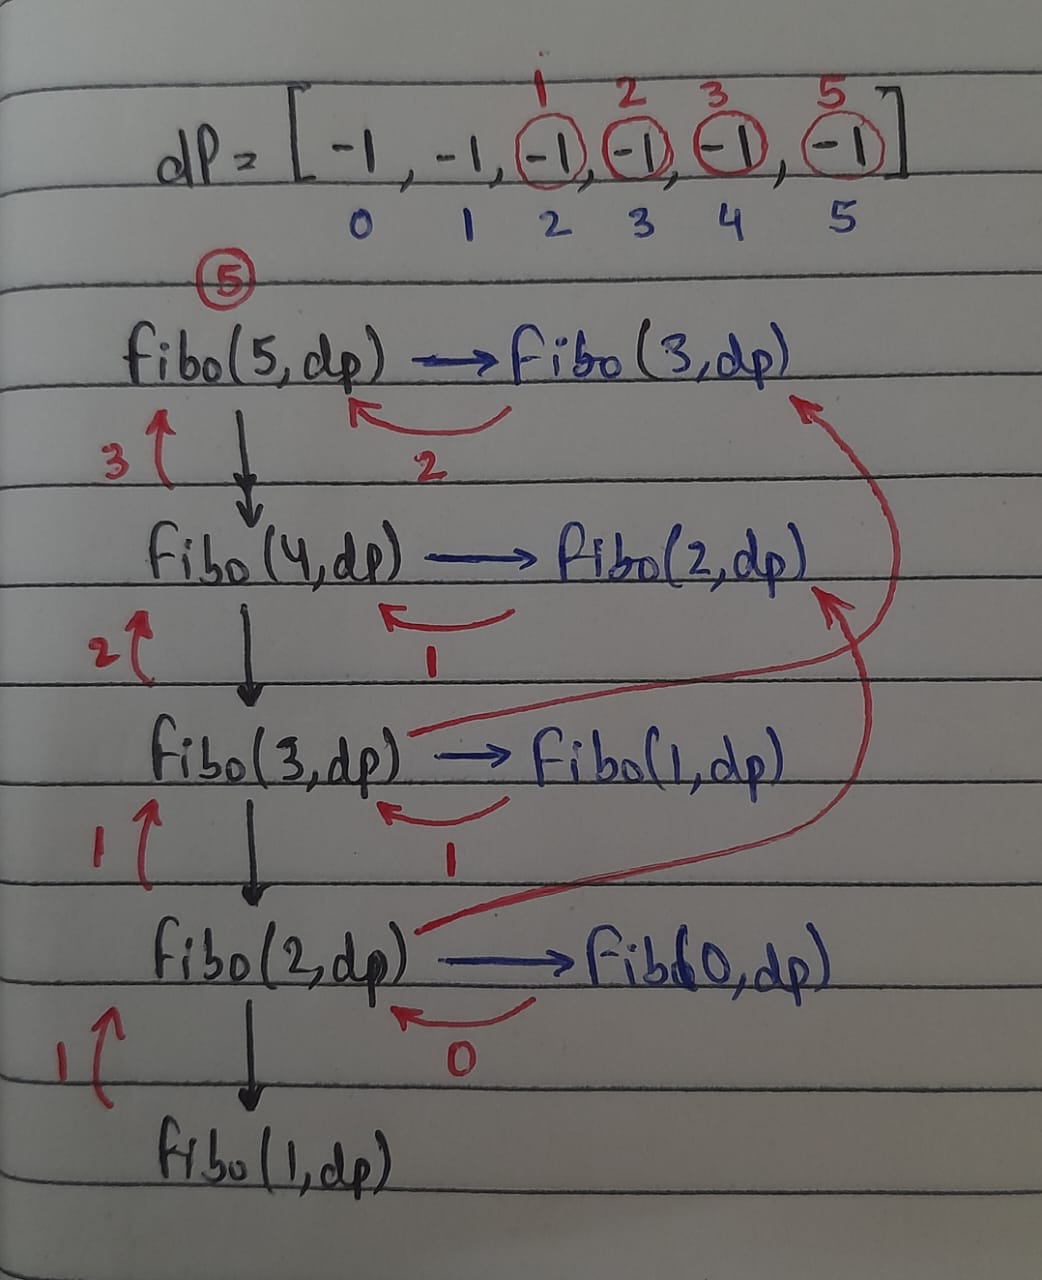 1 2 3 5
dP = [-1, -1, -1, -1, -1, -1]
0 1 2 3 4 5
5
fibo(5,dp) → fibo(3,dp)
3 2
fibo(4,dp) → fibo(2,dp)
2 1
fibo(3,dp) → fibo(1,dp)
1 1
fibo(2,dp) → fibo(0,dp)
1 0
fibo(1,dp)